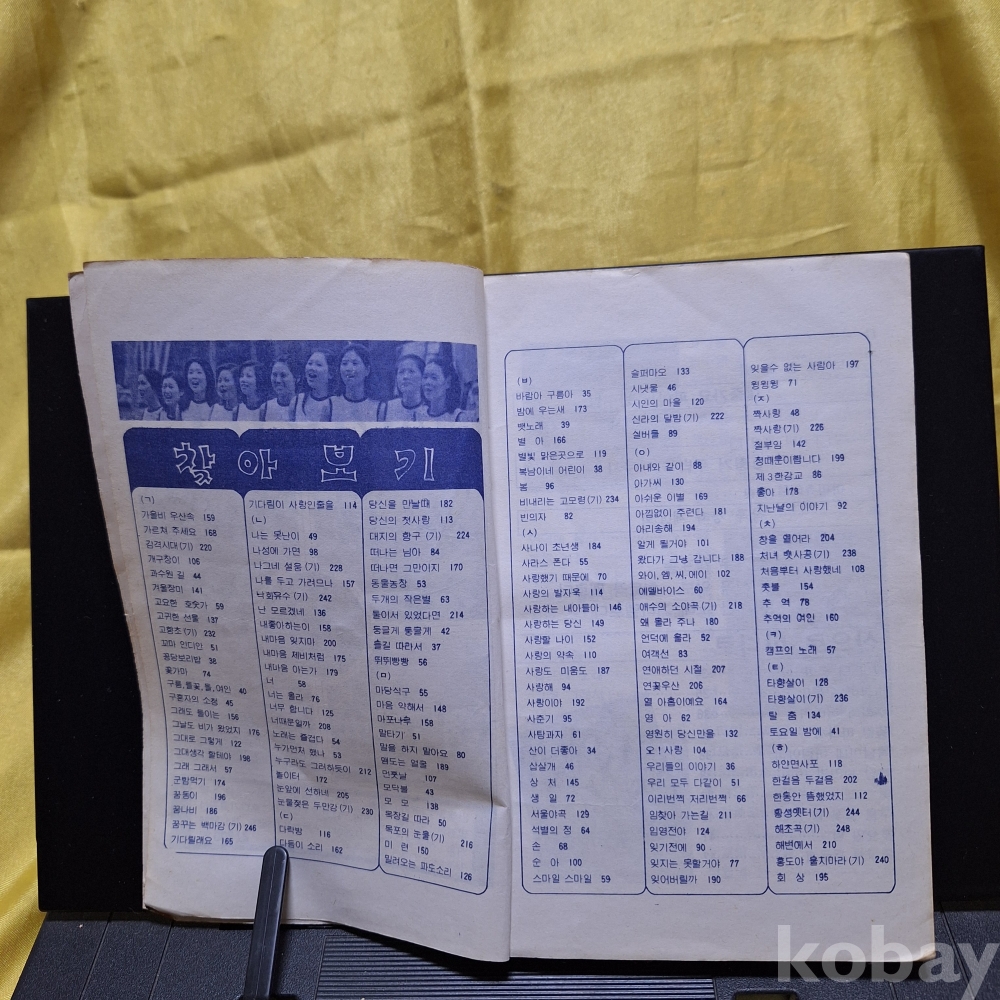 찾아보기
(ㄱ)
가을비 우산속 159
가르쳐 주세요 168
김격시대(기) 220
개구장이 106
과수원 길 44
겨울장미 141
고요한 호숫가 59
고귀한 선물 137
고향초(기) 232
꼬마 인디안 51
꽁당보리밥 38
꽃가마 74
구름,들꽃,돌,여인 40
구혼자의 소청 45
그래도 돌아는 156
그날도 비가 왔었지 176
그대로 그렇게 122
그대생각 할테야 198
그래 그래서 57
군밤먹기 174
꿈동이 196
꿈나비 186
꿈꾸는 백마강(기) 246
기다릴래요 165
기다림이 사랑인줄을 114
(ㄴ)
나는 못난이 49
나성에 가면 98
나그네 설움(기) 228
나를 두고 가려므나 157
낙화유수(기) 242
난 모르겠네 136
내좋아하는이 158
내마음 잊지마 200
내마음 제비처럼 175
내마음 아는가 179
너 58
너는 몰라 76
너무 합니다 125
너때문일까 208
노래는 즐겁다 54
누가먼저 했나 53
누구라도 그러하듯이 212
놀이터 172
눈앞에 선하네 205
눈물젖은 두만강(기) 230
(ㄷ)
다락방 116
다듬이 소리 162
당신을 만날때 182
당신의 첫사랑 113
대지의 항구(기) 224
떠나는 님아 84
떠나면 그만이지 170
동물농장 53
두개의 작은별 63
돌아서 있었다면 214
둥글게 둥글게 42
들길 따라서 37
뛰뛰빵빵 56
(ㅁ)
마당식구 55
마음 약해서 148
마포나루 158
말타기 51
말을 하지 말아요 80
맴도는 얼굴 189
먼훗날 107
모닥불 43
모 모 138
목장길 따라 50
목포의 눈물(기) 216
미 련 150
밀려오는 파도소리 126
(ㅂ)
바람아 구름아 35
밤에 우는새 173
뱃노래 39
별 아 166
별빛 맑은곳으로 119
복남이네 어린이 38
봄 96
비내리는 고모령(기) 234
빈의자 82
(ㅅ)
사나이 초년생 184
사라스 폰다 55
사랑했기 때문에 70
사랑의 발자욱 114
사랑하는 내아들아 146
사랑하는 당신 149
사랑할 나이 152
사랑의 약속 110
사랑도 미움도 187
사랑해 94
사랑이야 192
사준기 95
사탕과자 61
산이 더좋아 34
삽살개 46
상 처 145
생 일 72
서울야곡 129
석별의 정 64
손 68
순 아 100
스마일 스마일 59
슬퍼마오 133
시냇물 46
시인의 마을 120
신라의 달밤(기) 222
실버들 89
(ㅇ)
아내와 같이 88
아가씨 130
아쉬운 이별 169
아낌없이 주련다 181
아리송해 194
알게 될거야 101
왔다가 그냥 갑니다 188
와이,엠,씨,에이 102
에델바이스 60
애수의 소야곡(기) 218
왜 몰라 주나 180
언덕에 올라 52
여객선 83
연애하던 시절 207
연꽃우산 206
열 아홉이예요 164
염 아 62
영원히 당신만을 132
오! 사랑 104
우리들의 이야기 36
우리 모두 다같이 51
이리번쩍 저리번쩍 66
임찾아 가는길 211
입영전야 124
잊기전에 90
잊지는 못할거야 77
잊어버릴까 190
잊을수 없는 사람아 197
윙윙윙 71
(ㅈ)
짝사랑 48
짝사랑(기) 226
절부암 142
정때문이랍니다 199
제3한강교 86
좋아 178
지난날의 이야기 92
(ㅊ)
창을 열어라 204
처녀 뱃사공(기) 238
처음부터 사랑했네 108
촛불 154
추 억 78
추억의 여인 160
(ㅋ)
캠프의 노래 57
(ㅌ)
타향살이 128
타향살이(기) 236
탈 춤 134
토요일 밤에 41
(ㅎ)
하얀면사포 118
한걸음 두걸음 202
한동안 뜸했었지 112
황성옛터(기) 244
해조곡(기) 248
해변에서 210
홍도야 울지마라(기) 240
회 상 195
kobay